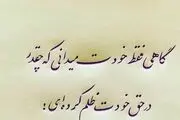 گاهی فقط خودت میدانی که چقدر
در حق خودت ظلم کرده ای: